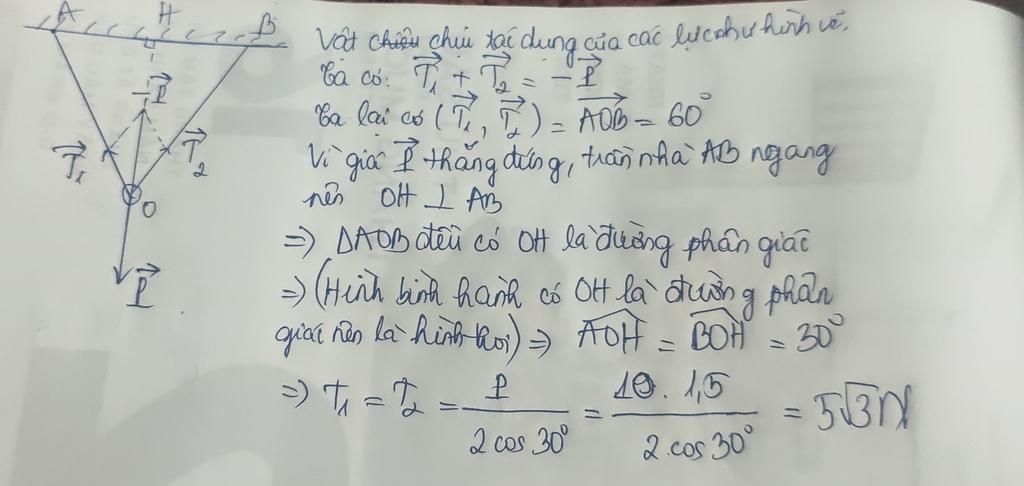 A H B
Vật chịu tác dụng của các lực như hình vẽ.
Ta có: T₁ + T₂ = -P
Ta lại có (T₁, T₂) = AOB = 60°
Vì giá P thẳng đứng, trần nhà AB ngang
nên OH ⊥ AB
=> ΔAOB đều có OH là đường phân giác
=> (Hình bình hành có OH là đường phân
giác nên là hình thoi) => AOH = BOH = 30°
=> T₁ = T₂ = P / (2 cos 30°) = 10 . 1,5 / (2 . cos 30°) = 5√3 N
-P
T₁ T₂
O
P